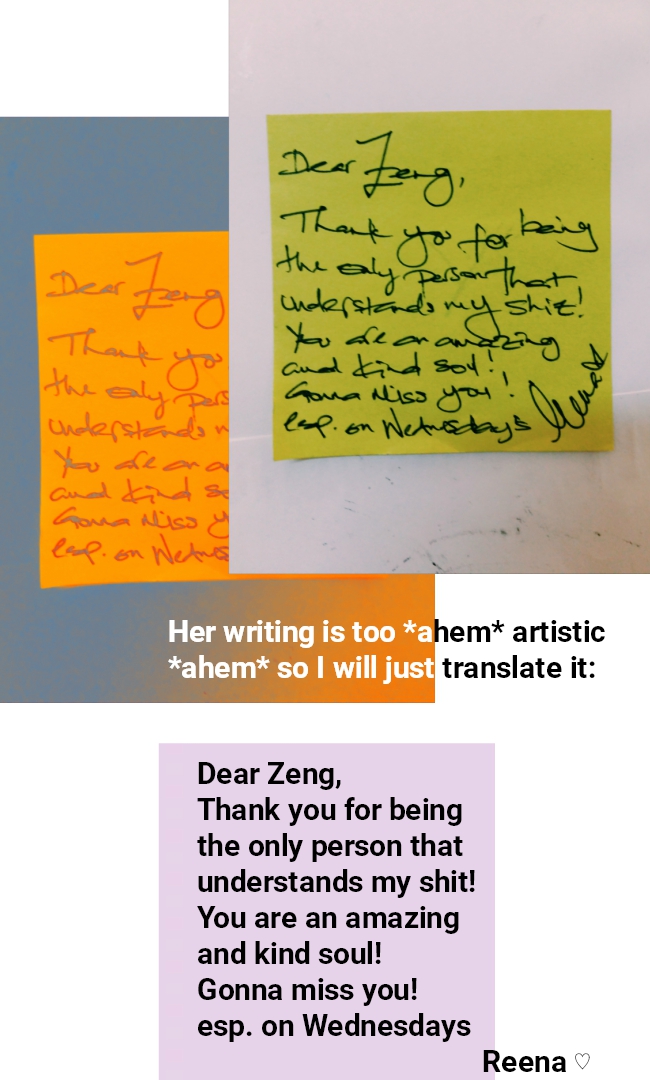 Dear Zeng,
Thank you for being
the only person that
understands my shit!
You are an amazing
and kind soul!
Gonna Miss you!
esp. on Wednesday's
Reena
Dear Zeng
Thank you
the only pers
understands m
You are an a
and kind so
Gonna Miss y
esp. on Wednes
Her writing is too *ahem* artistic
*ahem* so I will just translate it:
Dear Zeng,
Thank you for being
the only person that
understands my shit!
You are an amazing
and kind soul!
Gonna miss you!
esp. on Wednesdays
Reena ♡